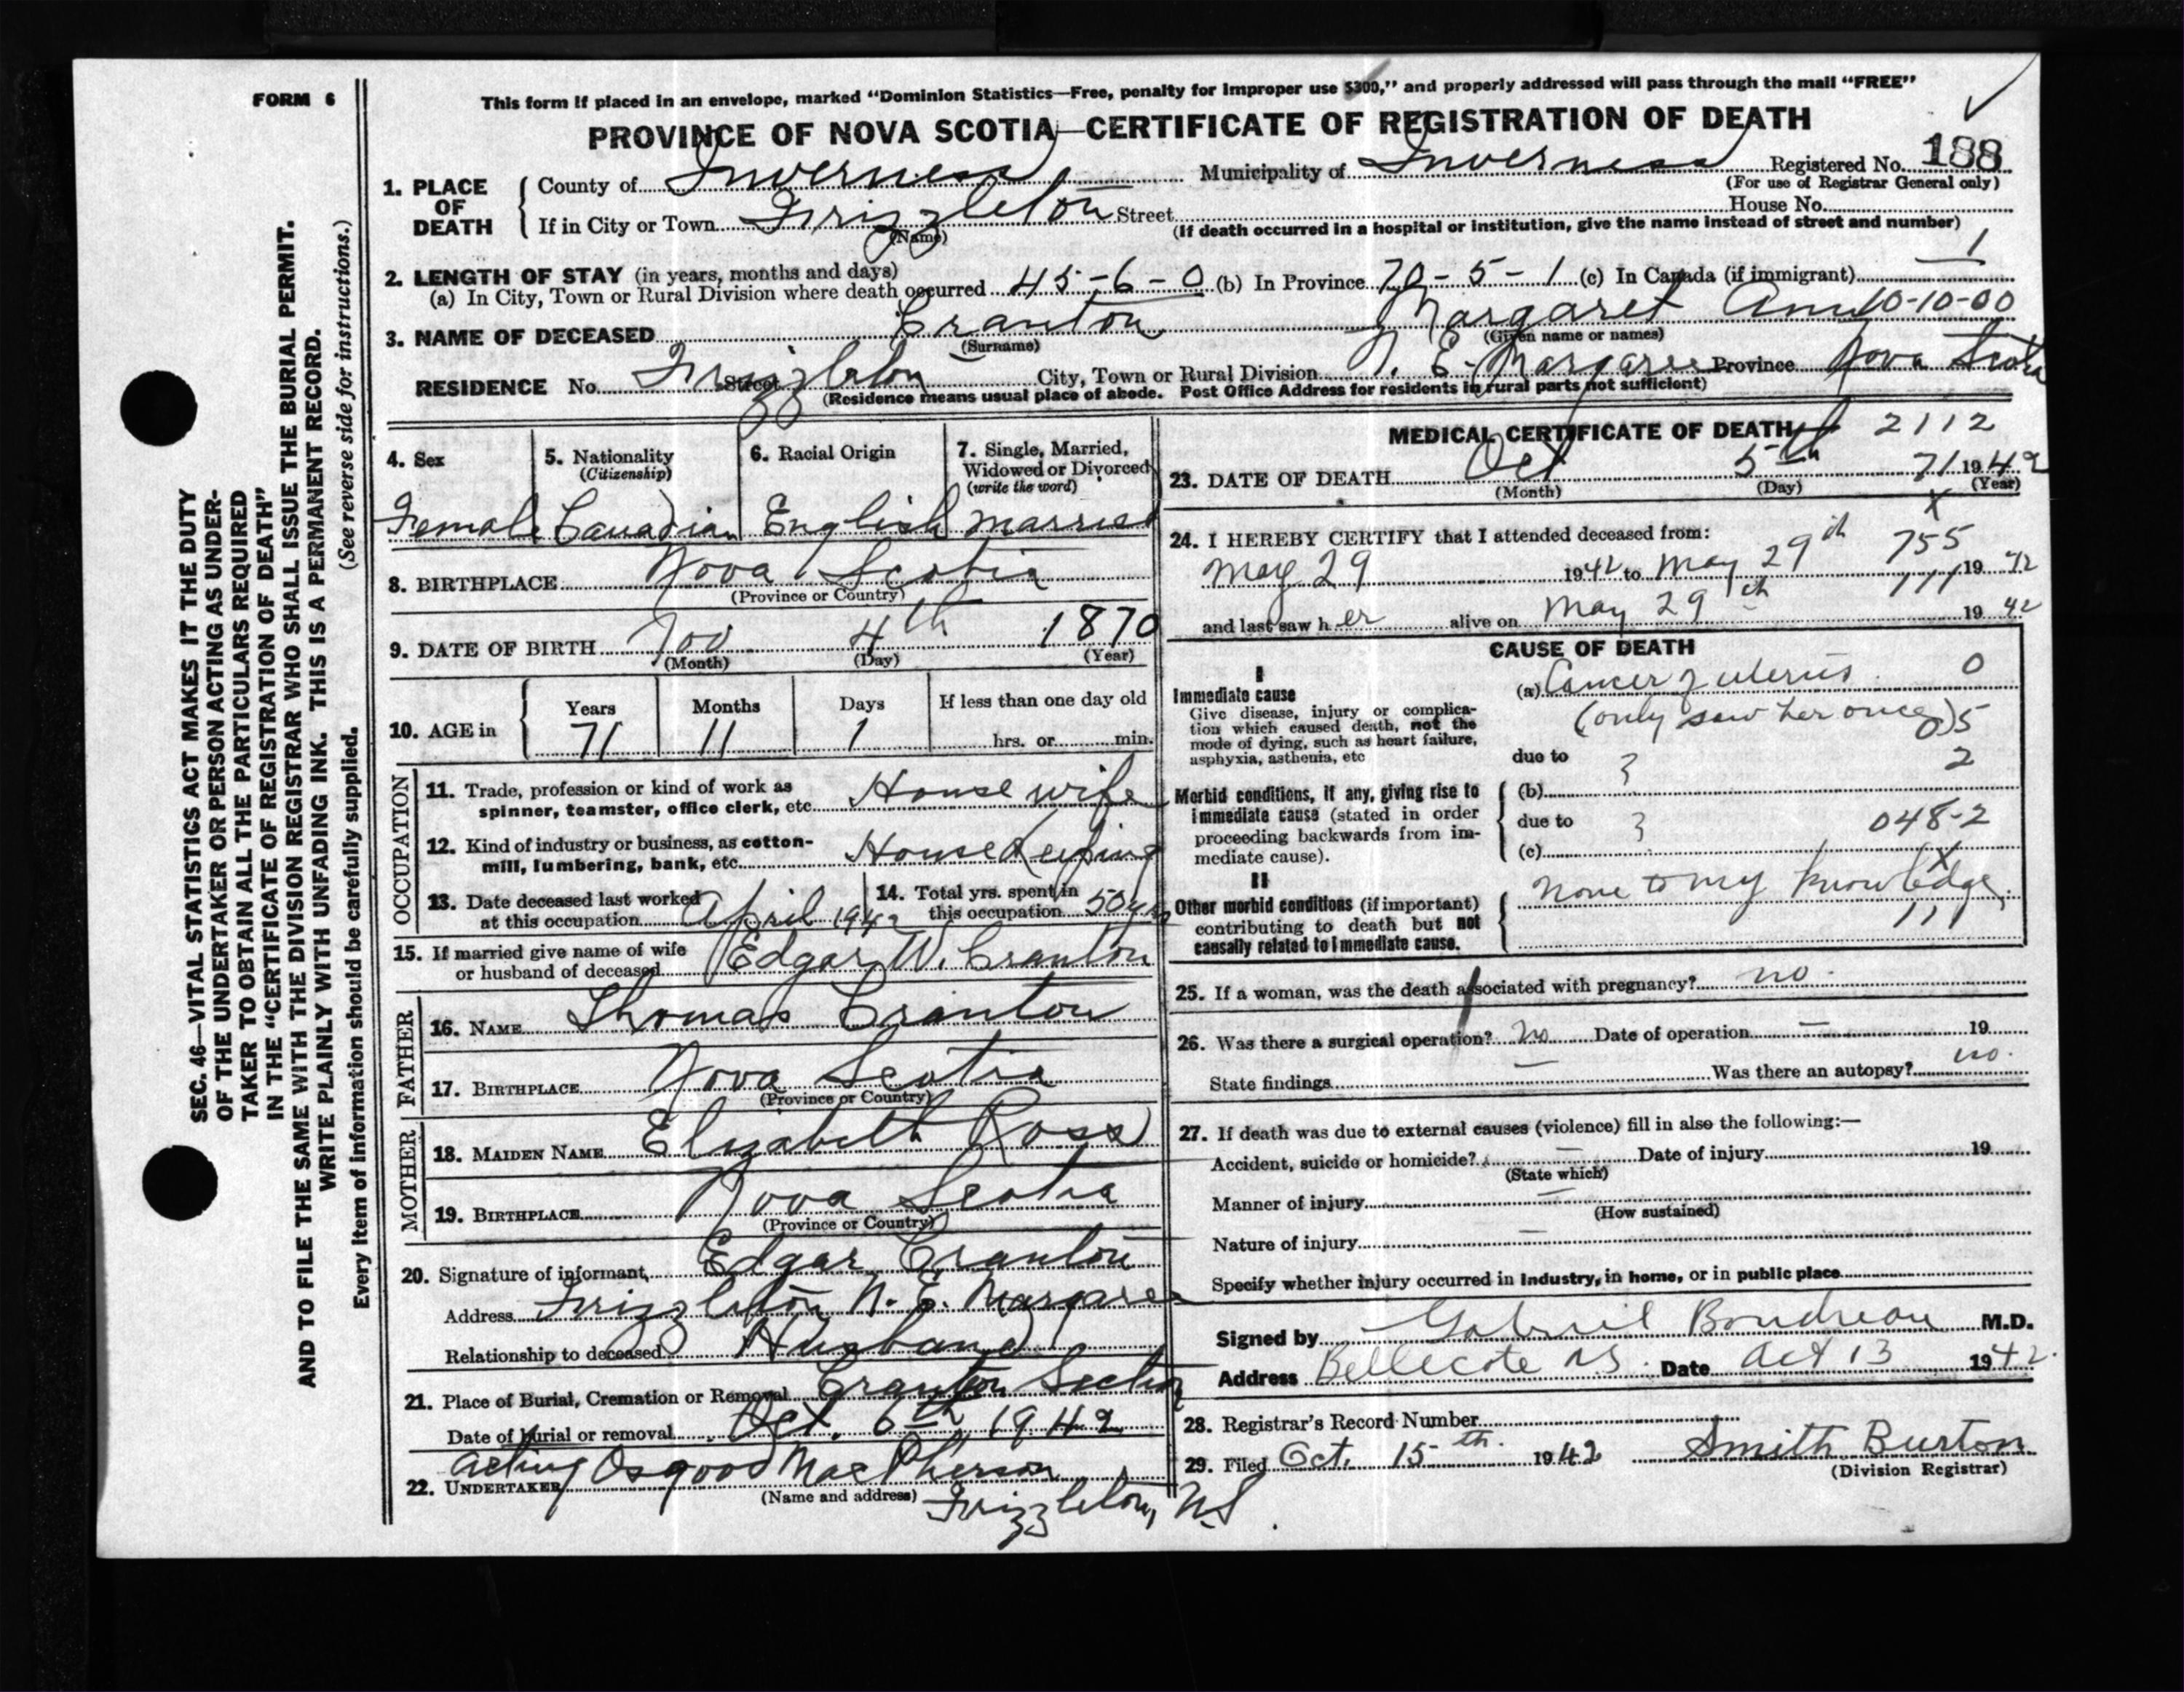 FORM 6
This form if placed in an envelope, marked “Dominion Statistics—Free, penalty for improper use $300,” and properly addressed will pass through the mail “FREE”
PROVINCE OF NOVA SCOTIA—CERTIFICATE OF REGISTRATION OF DEATH
1. PLACE OF DEATH
County of Inverness Municipality of Inverness Registered No. 188
(For use of Registrar General only)
If in City or Town Frizzleton Street House No.
(Name) (If death occurred in a hospital or institution, give the name instead of street and number)
1
2. LENGTH OF STAY (in years, months and days)
(a) In City, Town or Rural Division where death occurred 45-6-0 (b) In Province 70-5-1 (c) In Canada (if immigrant)
3. NAME OF DECEASED Cranton Margaret Ann 10-10-00
(Surname) (Given name or names)
RESIDENCE No. Frizzleton Street City, Town or Rural Division N. E. Margaree Province Nova Scotia
(Residence means usual place of abode. Post Office Address for residents in rural parts not sufficient)
4. Sex 5. Nationality (Citizenship) 6. Racial Origin 7. Single, Married, Widowed or Divorced (write the word)
Female Canadian English Married
8. BIRTHPLACE Nova Scotia
(Province or Country)
9. DATE OF BIRTH Nov 4th 1870
(Month) (Day) (Year)
10. AGE in Years Months Days If less than one day old
71 11 1 hrs. or min.
OCCUPATION
11. Trade, profession or kind of work as
spinner, teamster, office clerk, etc. House wife
12. Kind of industry or business, as cotton-
mill, lumbering, bank, etc. House Keeping
13. Date deceased last worked at this occupation April 1942 14. Total yrs. spent in this occupation 50 yrs
15. If married give name of wife
or husband of deceased Edgar W. Cranton
FATHER
16. NAME Thomas Cranton
17. BIRTHPLACE Nova Scotia
(Province or Country)
MOTHER
18. MAIDEN NAME Elizabeth Ross
19. BIRTHPLACE Nova Scotia
(Province or Country)
20. Signature of informant Edgar Cranton
Address Frizzleton N. E. Margaree
Relationship to deceased Husband
21. Place of Burial, Cremation or Removal Cranton Section
Date of burial or removal Oct. 6th 1942
22. UNDERTAKER acting Osgood MacPherson
(Name and address) Frizzleton, N.S.
MEDICAL CERTIFICATE OF DEATH 2112
23. DATE OF DEATH Oct 5th 71 1942
(Month) (Day) (Year)
X
24. I HEREBY CERTIFY that I attended deceased from:
May 29 1942 to May 29th 755 1942
111
and last saw her alive on May 29th 1942
CAUSE OF DEATH
I
Immediate cause
Give disease, injury or complica-
tion which caused death, not the
mode of dying, such as heart failure,
asphyxia, asthenia, etc
(a) Cancer of uterus 0
(only saw her once) 5
due to 3 2
Morbid conditions, if any, giving rise to
immediate cause (stated in order
proceeding backwards from im-
mediate cause).
(b)
due to 3 048-2
(c) X
II
Other morbid conditions (if important)
contributing to death but not
causally related to immediate cause.
None to my knowledge.
111
25. If a woman, was the death associated with pregnancy? no.
26. Was there a surgical operation? no Date of operation — 19
State findings — Was there an autopsy? no.
27. If death was due to external causes (violence) fill in also the following:—
Accident, suicide or homicide? — Date of injury 19
(State which)
Manner of injury —
(How sustained)
Nature of injury —
Specify whether injury occurred in industry, in home, or in public place
Signed by Gabriel Boudreau M.D.
Address Bellecote NS. Date Oct 13 1942.
28. Registrar's Record Number
29. Filed Oct. 15th. 1942 Smith Burton
(Division Registrar)
SEC. 46—VITAL STATISTICS ACT MAKES IT THE DUTY
OF THE UNDERTAKER OR PERSON ACTING AS UNDER-
TAKER TO OBTAIN ALL THE PARTICULARS REQUIRED
IN THE “CERTIFICATE OF REGISTRATION OF DEATH”
AND TO FILE THE SAME WITH THE DIVISION REGISTRAR WHO SHALL ISSUE THE BURIAL PERMIT.
WRITE PLAINLY WITH UNFADING INK. THIS IS A PERMANENT RECORD.
Every item of information should be carefully supplied. (See reverse side for instructions.)